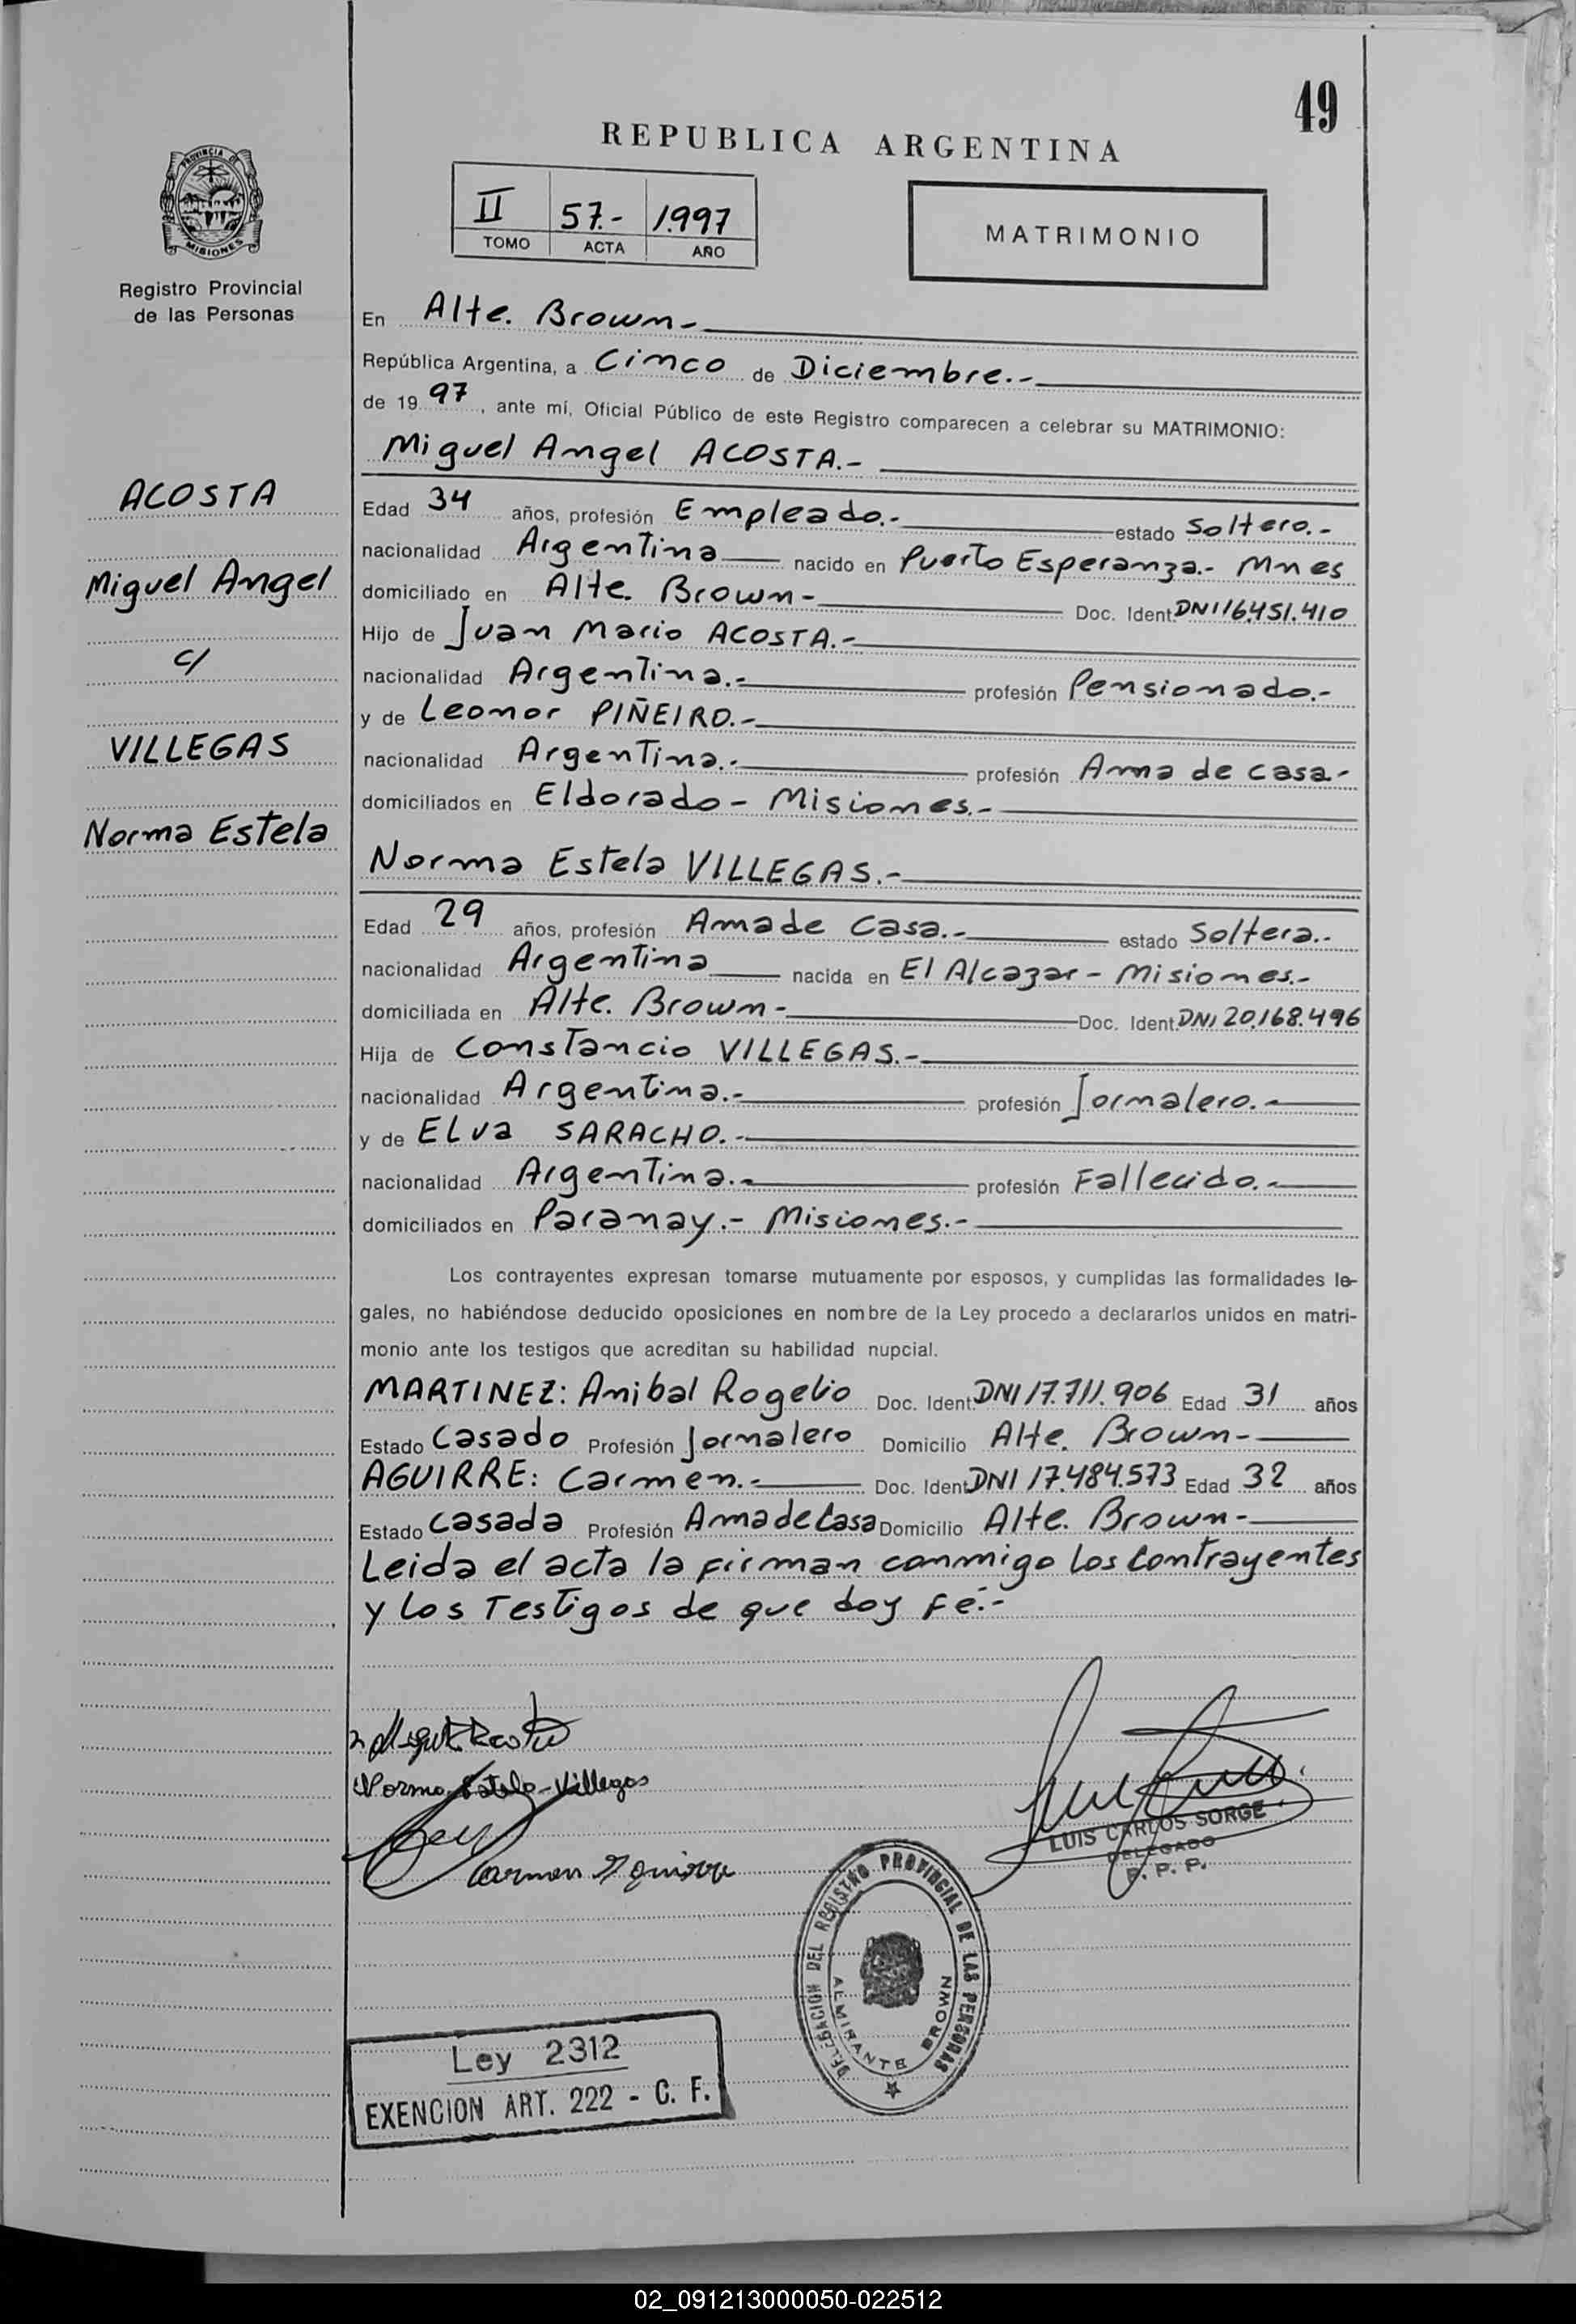 49
REPUBLICA ARGENTINA
PROVINCIA DE
MISIONES
Registro Provincial
de las Personas
II 57.- 1.997
TOMO ACTA AÑO
MATRIMONIO
En Alte. Brown-
República Argentina, a Cinco de Diciembre.-
de 19 97, ante mí, Oficial Público de este Registro comparecen a celebrar su MATRIMONIO:
Miguel Angel ACOSTA.-
ACOSTA
Miguel Angel
c/
VILLEGAS
Norma Estela
Edad 34 años, profesión Empleado.- estado Soltero.-
nacionalidad Argentina nacido en Puerto Esperanza.- Mnes
domiciliado en Alte. Brown- Doc. Ident. DNI 16.451.410
Hijo de Juan Mario ACOSTA.-
nacionalidad Argentina.- profesión Pensionado.-
y de Leonor PIÑEIRO.-
nacionalidad Argentina.- profesión Ama de casa.-
domiciliados en Eldorado - Misiones.-
Norma Estela VILLEGAS.-
Edad 29 años, profesión Ama de Casa.- estado Soltera.-
nacionalidad Argentina nacida en El Alcazar - Misiones.-
domiciliada en Alte. Brown- Doc. Ident. DNI 20.168.496
Hija de Constancio VILLEGAS.-
nacionalidad Argentina.- profesión Jornalero.-
y de ELva SARACHO.-
nacionalidad Argentina.- profesión Fallecido.-
domiciliados en Paranay.- Misiones.-
Los contrayentes expresan tomarse mutuamente por esposos, y cumplidas las formalidades le-
gales, no habiéndose deducido oposiciones en nombre de la Ley procedo a declararlos unidos en matri-
monio ante los testigos que acreditan su habilidad nupcial.
MARTINEZ: Anibal Rogelio Doc. Ident. DNI 17.711.906 Edad 31 años
Estado Casado Profesión Jornalero Domicilio Alte. Brown-
AGUIRRE: Carmen.- Doc. Ident. DNI 17.484.573 Edad 32 años
Estado Casada Profesión Ama de Casa Domicilio Alte. Brown-
Leida el acta la firman conmigo los Contrayentes
y los Testigos de que doy fé.-
Norma Estela - Villegas
LUIS CARLOS SORGE
DELEGADO
R. P. P.
DELEGACION DEL REGISTRO PROVINCIAL DE LAS PERSONAS
ALMIRANTE BROWN
Ley 2312
EXENCION ART. 222 - C. F.
02_091213000050-022512